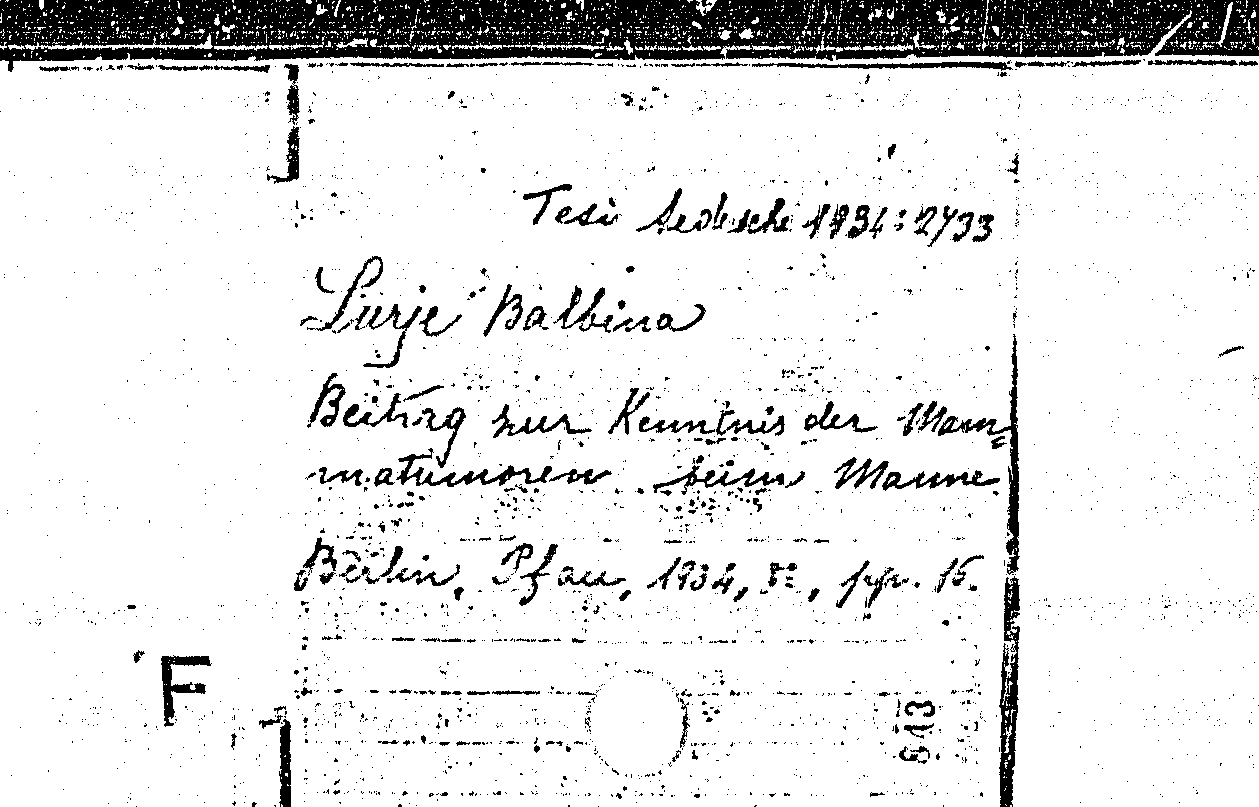 Tesi tedesche 1934:2733
Lurje Balbina
Beitrag zur Kenntnis der Mam=
matumoren beim Manne
Berlin, Pfau, 1934, 8º, pp. 15.
F
643